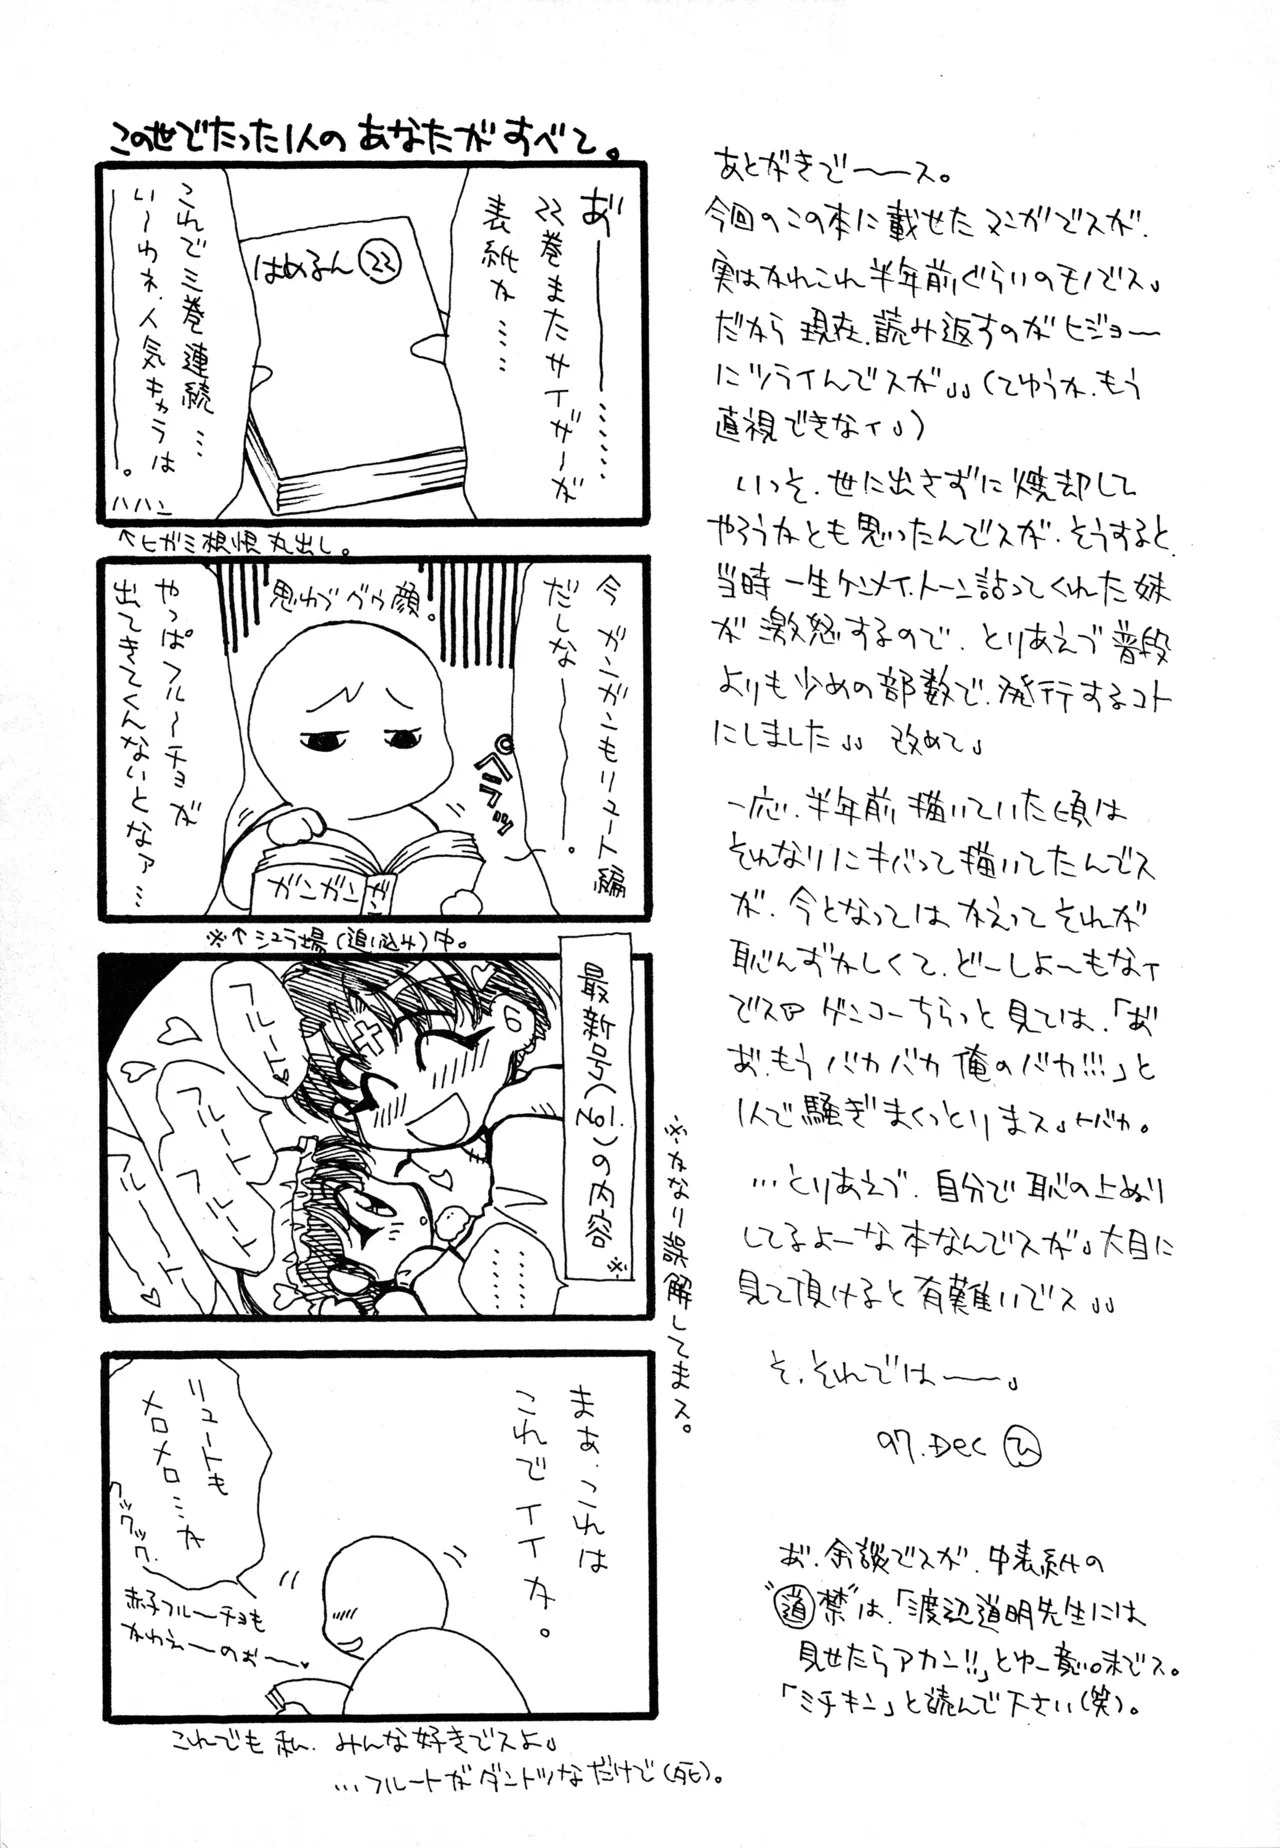 この世でたった1人のあなたがすべて。
あ゛ーーー………
22巻またサイザーが
表紙か……
はめるん㉒
これで三巻連続…
い〜わネ、人気キャラは
――――。
ハハン
↑ヒガミ根性丸出し。
今ガンガンもリュート編
だしなーーー。
思わずブウ顔。
ペラッ
ガンガン
ガン
やっぱフル〜チョが
出てきてくんないとなァ…
※↑シュラ場(追い込み)中。
最新号(No.1)の内容※
フルート♥
フルートフルート
フルート〜♥
………
※かなり誤解してまス。
まぁ、これは
これでイイか。
リュートも
メロメロ…か
クックックックッ
赤子フル〜チョも
かわえーのぉー♥
これでも私、みんな好きでスよ。
…フルートがダントツなだけで(死)。
あとがきで――ス。
今回のこの本に載せたマンガでスが、
実はかれこれ半年前ぐらいのモノでス。
だから現在、読み返すのがヒジョ――
にツライんでスが。。(てゆうか、もう
直視できなィ。)
いっそ、世に出さずに焼却して
やろうかとも思ったんでスが、そうすると、
当時一生ケンメイ、トーン貼ってくれた妹
が激怒するので、とりあえず普段
よりも少めの部数で、発行するコト
にしました。。改めて。
一応、半年前描いていた頃は
それなりにキバって描いてたんでス
が、今となってはかえってそれが
恥んずかしくて、どーしよ〜もなィ
でス ゲンコーちらっと見ては、「あ゛
あ゛、もうバカバカ俺のバカ!!!」と
1人で騒ぎまくっとりまス。バカ。
…とりあえず、自分で恥の上ぬり
してるよーな本なんでスが。大目に
見て頂けると有難いでス。。
そ、それでは――。
97.Dec ひ
あ、余談でスが、中表紙の
“㊂禁”は、「渡辺道明先生には
見せたらアカン!!」とゆー意味でス。
「ミチキン」と読んで下さい(笑)。